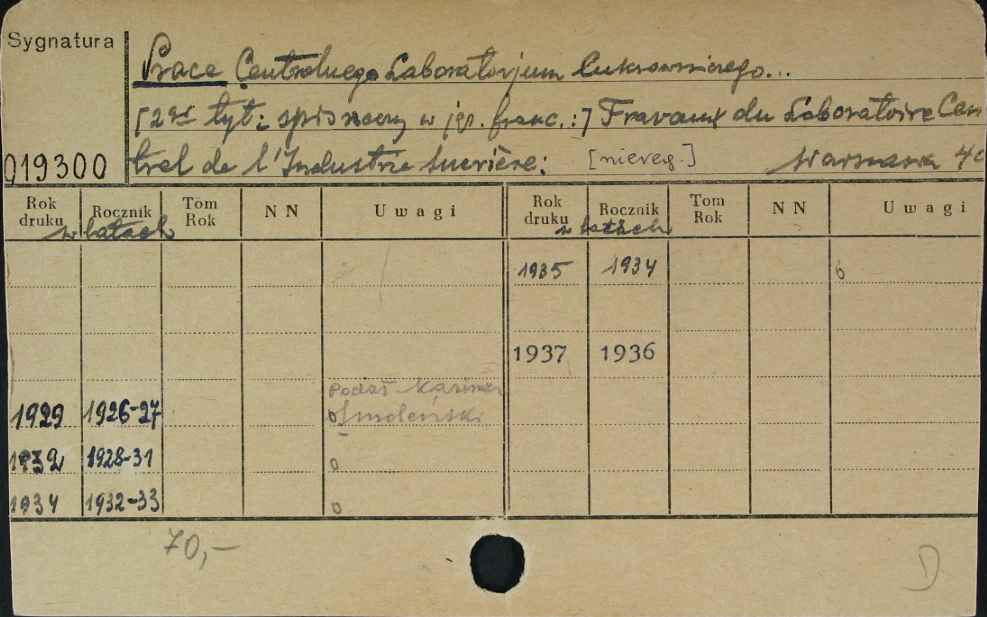 Sygnatura
Prace Centralnego Laboratorjum Cukrowniczego...
[2gi tyt. i spis rzeczy w jęz. franc.:] Travaux du Laboratoire Cen
tral de l'Industrie Sucrière:
[niereg.]
Warszawa 4o
019300
Rok druku Rocznik Tom Rok NN Uwagi Rok druku Rocznik Tom Rok NN Uwagi
w latach w latach
1935 1934
1937 1936
Podał Kazimierz
1929 1926-27 o Smoleński
1932 1928-31 o
1934 1932-33 o
70,-
D